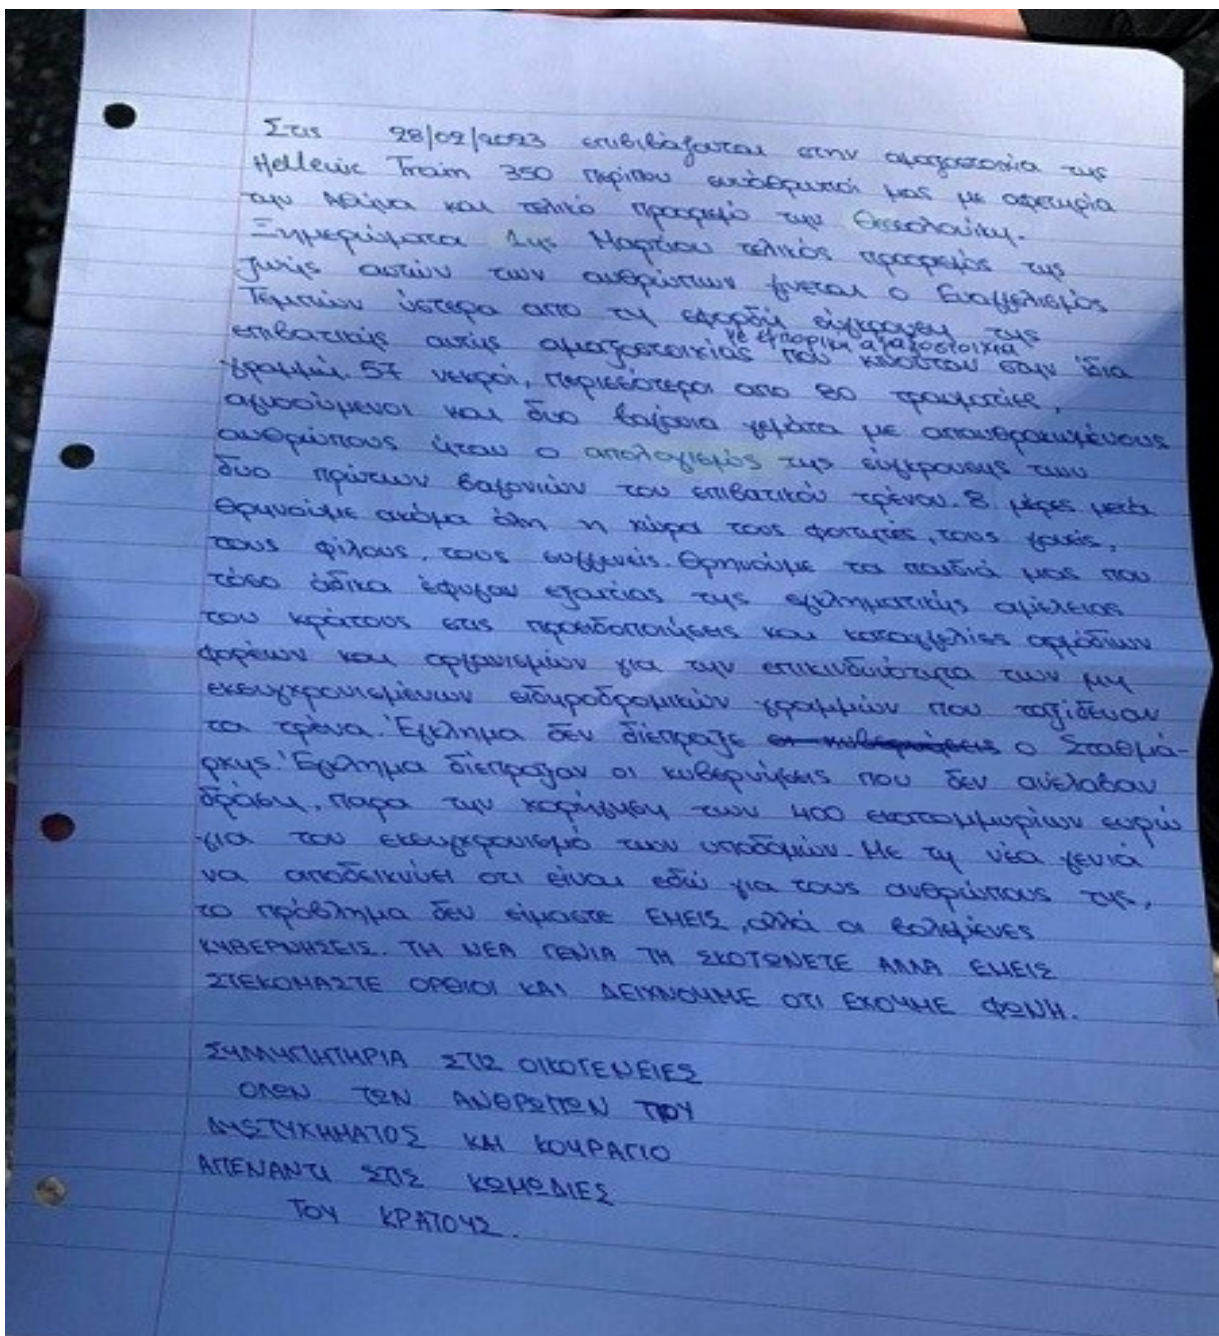 Στις 28/02/2023 επιβιβάζονται στην αμαξοστοιχία της
Hellenic Train 350 περίπου συνάνθρωποί μας με αφετηρία
την Αθήνα και τελικό προορισμό την Θεσσαλονίκη.
Ξημερώματα 1ης Μαρτίου τελικός προορισμός της
ζωής αυτών των ανθρώπων γίνεται ο Ευαγγελισμός
Τεμπών ύστερα από τη σφοδρή σύγκρουση της
επιβατικής αυτής αμαξοστοιχίας με εμπορική αμαξοστοιχία που κινούταν στην ίδια
γραμμή. 57 νεκροί, περισσότεροι από 80 τραυματίες,
αγνοούμενοι και δυο βαγόνια γεμάτα με απανθρακωμένους
ανθρώπους ήταν ο απολογισμός της σύγκρουσης των
δυο πρώτων βαγονιών του επιβατικού τρένου. 8 μέρες μετά
θρηνούμε ακόμα όλη η χώρα τους φοιτητές, τους γονείς,
τους φίλους, τους συγγενείς. Θρηνούμε τα παιδιά μας που
τόσο άδικα έφυγαν εξαιτίας της εγκληματικής αμέλειας
του κράτους στις προειδοποιήσεις και καταγγελίες αρμόδιων
φορέων και οργανισμών για την επικινδυνότητα των μη
εκσυγχρονισμένων σιδηροδρομικών γραμμών που ταξίδευαν
τα τρένα. Έγκλημα δεν διέπραξε οι κυβερνήσεις ο Σταθμά-
ρχης. Έγκλημα διέπραξαν οι κυβερνήσεις που δεν ανέλαβαν
δράση, παρά την χορήγηση των 400 εκατομμυρίων ευρώ
για τον εκσυγχρονισμό των υποδομών. Με τη νέα γενιά
να αποδεικνύει οτι είναι εδώ για τους ανθρώπους της,
το πρόβλημα δεν είμαστε ΕΜΕΙΣ, αλλά οι βολεμένες
ΚΥΒΕΡΝΗΣΕΙΣ. ΤΗ ΝΕΑ ΓΕΝΙΑ ΤΗ ΣΚΟΤΩΝΕΤΕ ΑΛΛΑ ΕΜΕΙΣ
ΣΤΕΚΟΜΑΣΤΕ ΟΡΘΙΟΙ ΚΑΙ ΔΕΙΧΝΟΥΜΕ ΟΤΙ ΕΧΟΥΜΕ ΦΩΝΗ.
ΣΥΛΛΥΠΗΤΗΡΙΑ ΣΤΙΣ ΟΙΚΟΓΕΝΕΙΕΣ
ΟΛΩΝ ΤΩΝ ΑΝΘΡΩΠΩΝ ΤΟΥ
ΔΥΣΤΥΧΗΜΑΤΟΣ ΚΑΙ ΚΟΥΡΑΓΙΟ
ΑΠΕΝΑΝΤΙ ΣΤΙΣ ΚΩΜΩΔΙΕΣ
ΤΟΥ ΚΡΑΤΟΥΣ.